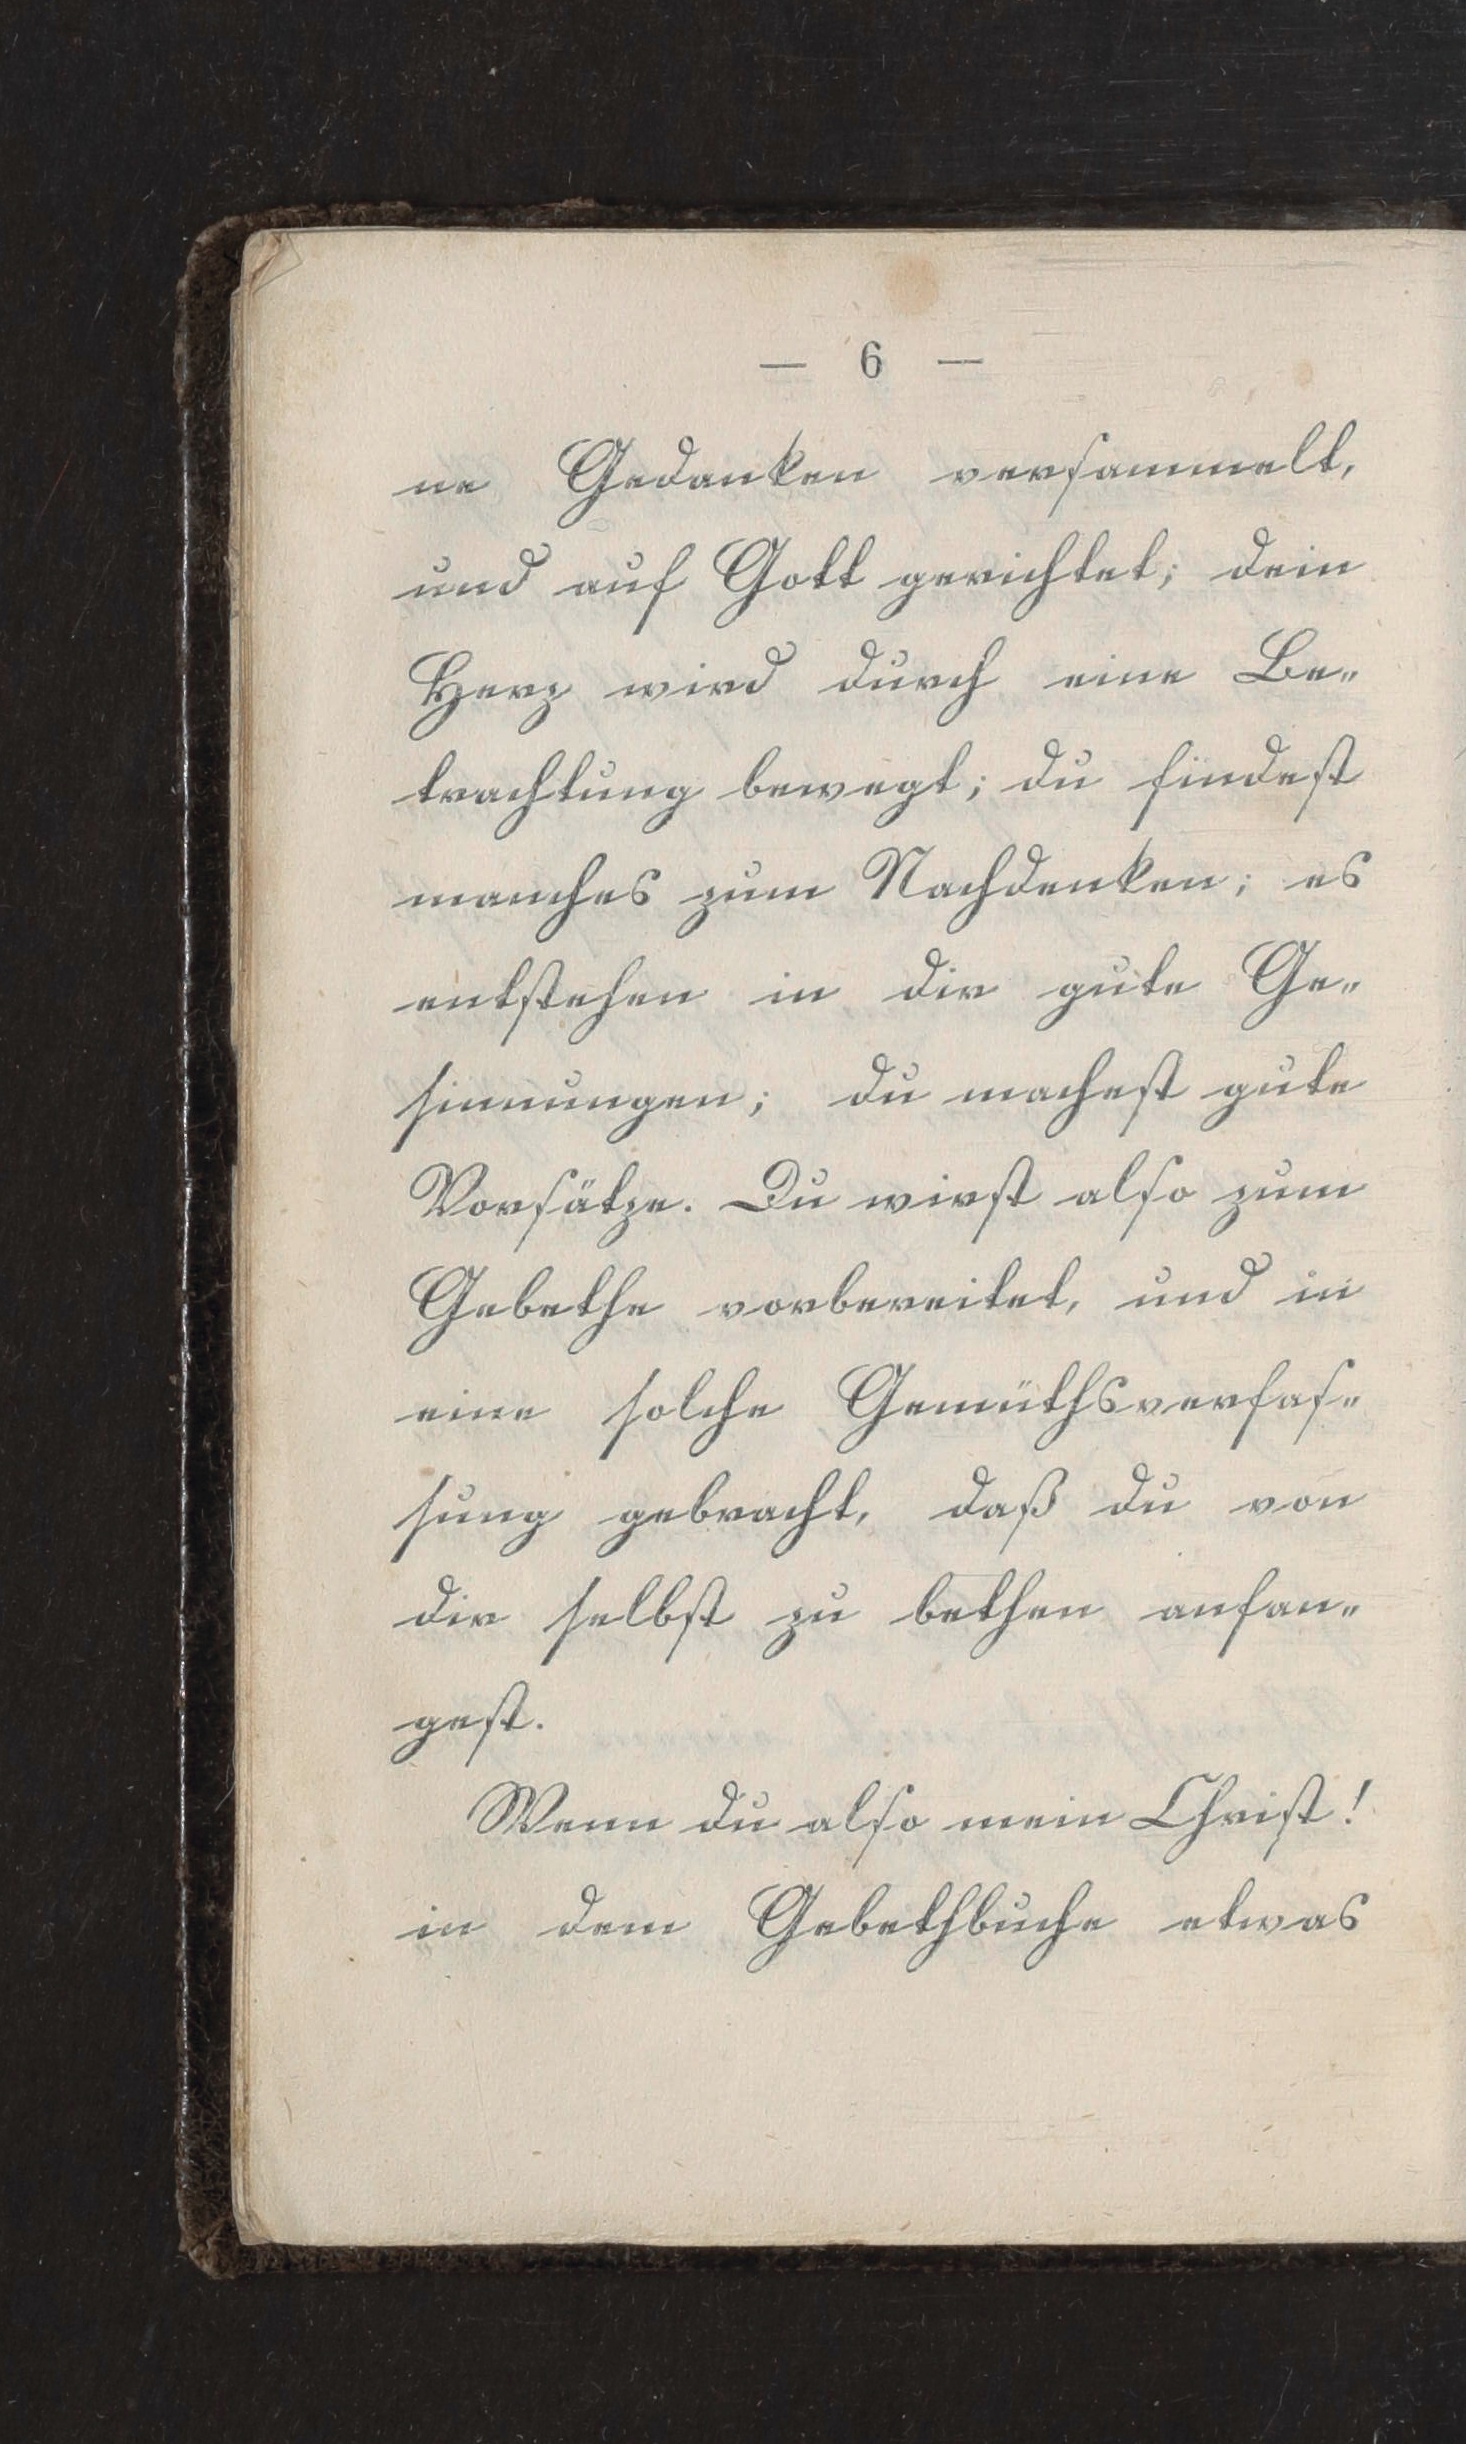 — 6 —
ne Gedanken versammelt,
und auf Gott gerichtet; dein
Herz wird durch eine Be„
trachtung bewegt; du findest
manches zum Nachdenken; es
entstehen in dir gute Ge„
sinnungen; du machest gute
Vorsätze. Du wirst also zum
Gebethe vorbereitet, und in
eine solche Gemüthsverfas„
sung gebracht, daß du von
dir selbst zu bethen anfan„
gest.
Wenn du also mein Christ!
in dem Gebethbuche etwas